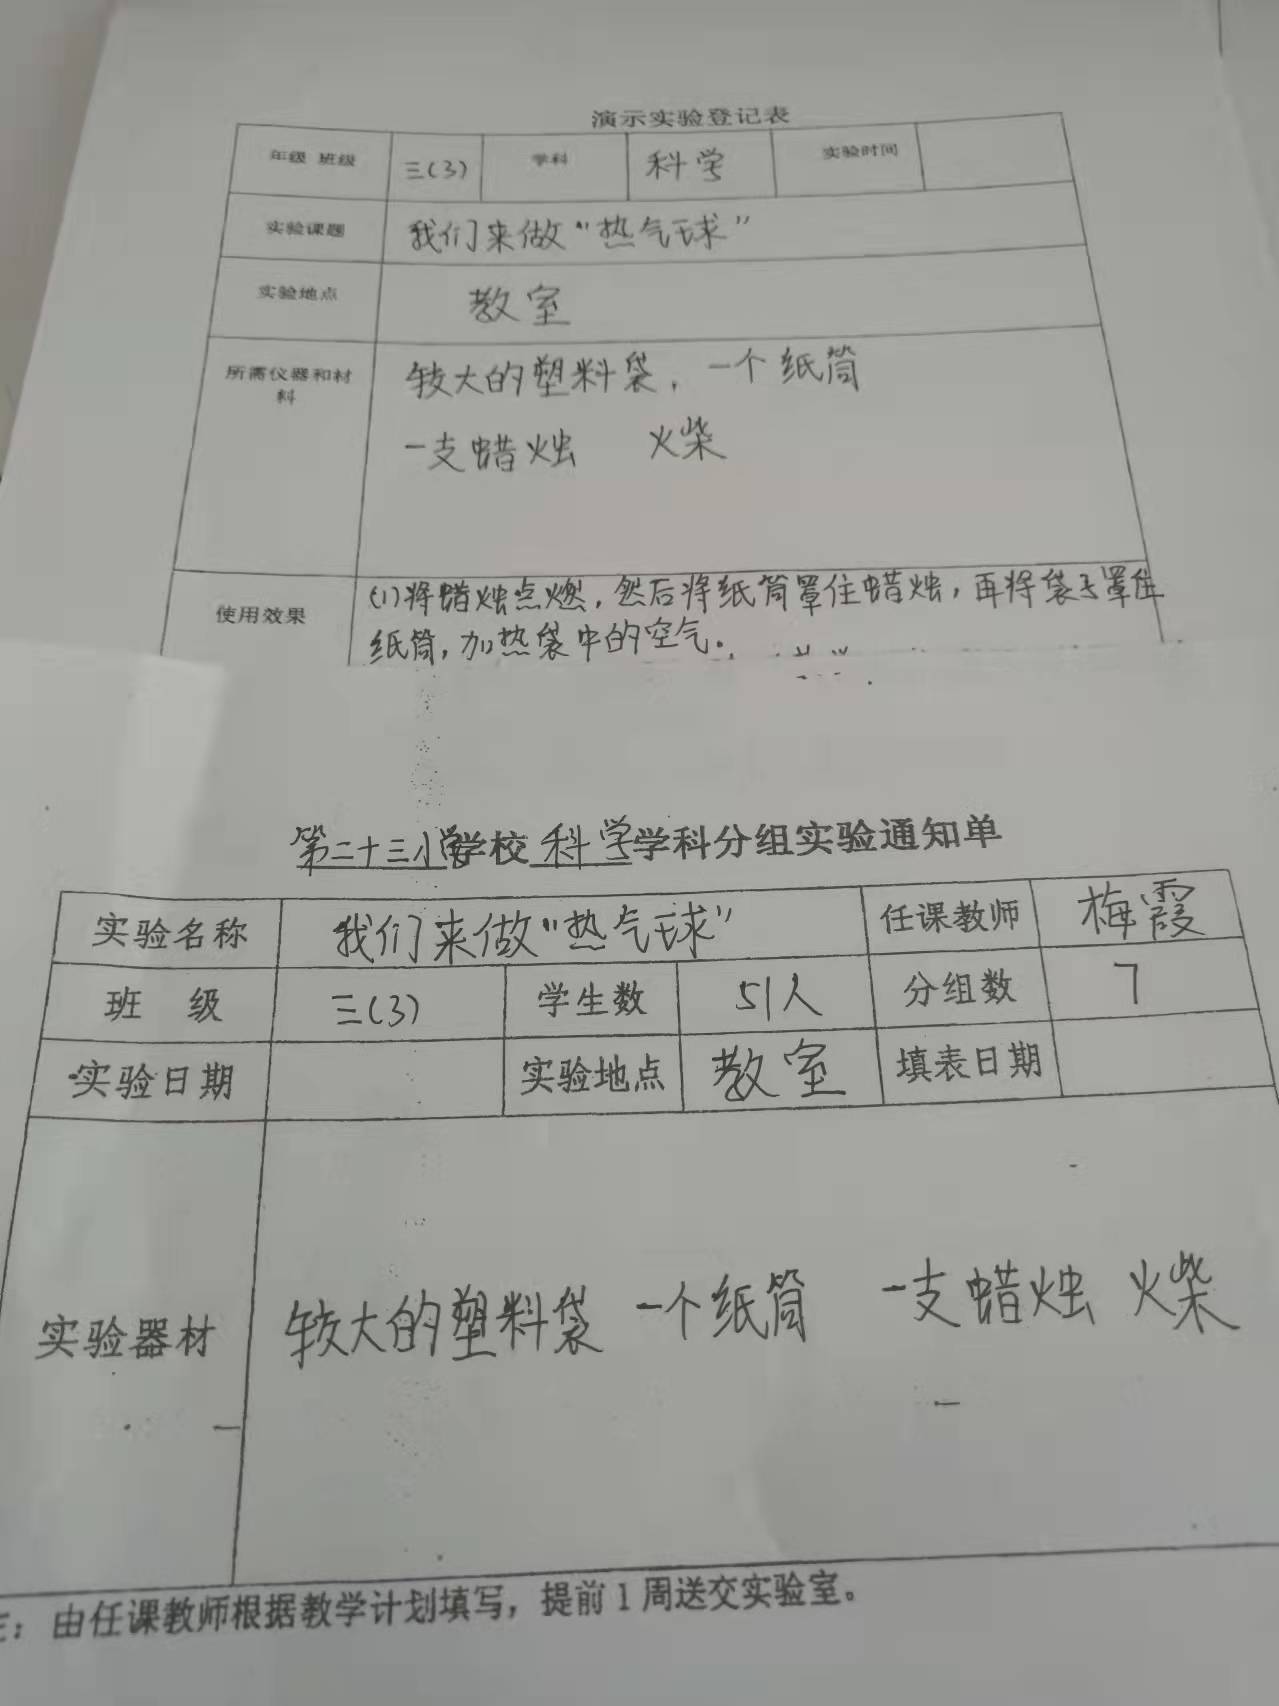 演示实验登记表
年级 班级 三(3) 学科 科学 实验时间
实验课题 我们来做“热气球”
实验地点 教室
所需仪器和材 较大的塑料袋，一个纸筒
料
一支蜡烛 火柴
使用效果 (1)将蜡烛点燃，然后将纸筒罩住蜡烛，再将袋子罩住
纸筒，加热袋中的空气。
第二十三小学学校科学学科分组实验通知单
实验名称 我们来做“热气球” 任课教师 梅霞
班 级 三(3) 学生数 51人 分组数 7
实验日期 实验地点 教室 填表日期
实验器材 较大的塑料袋 一个纸筒 一支蜡烛 火柴
：由任课教师根据教学计划填写，提前1周送交实验室。